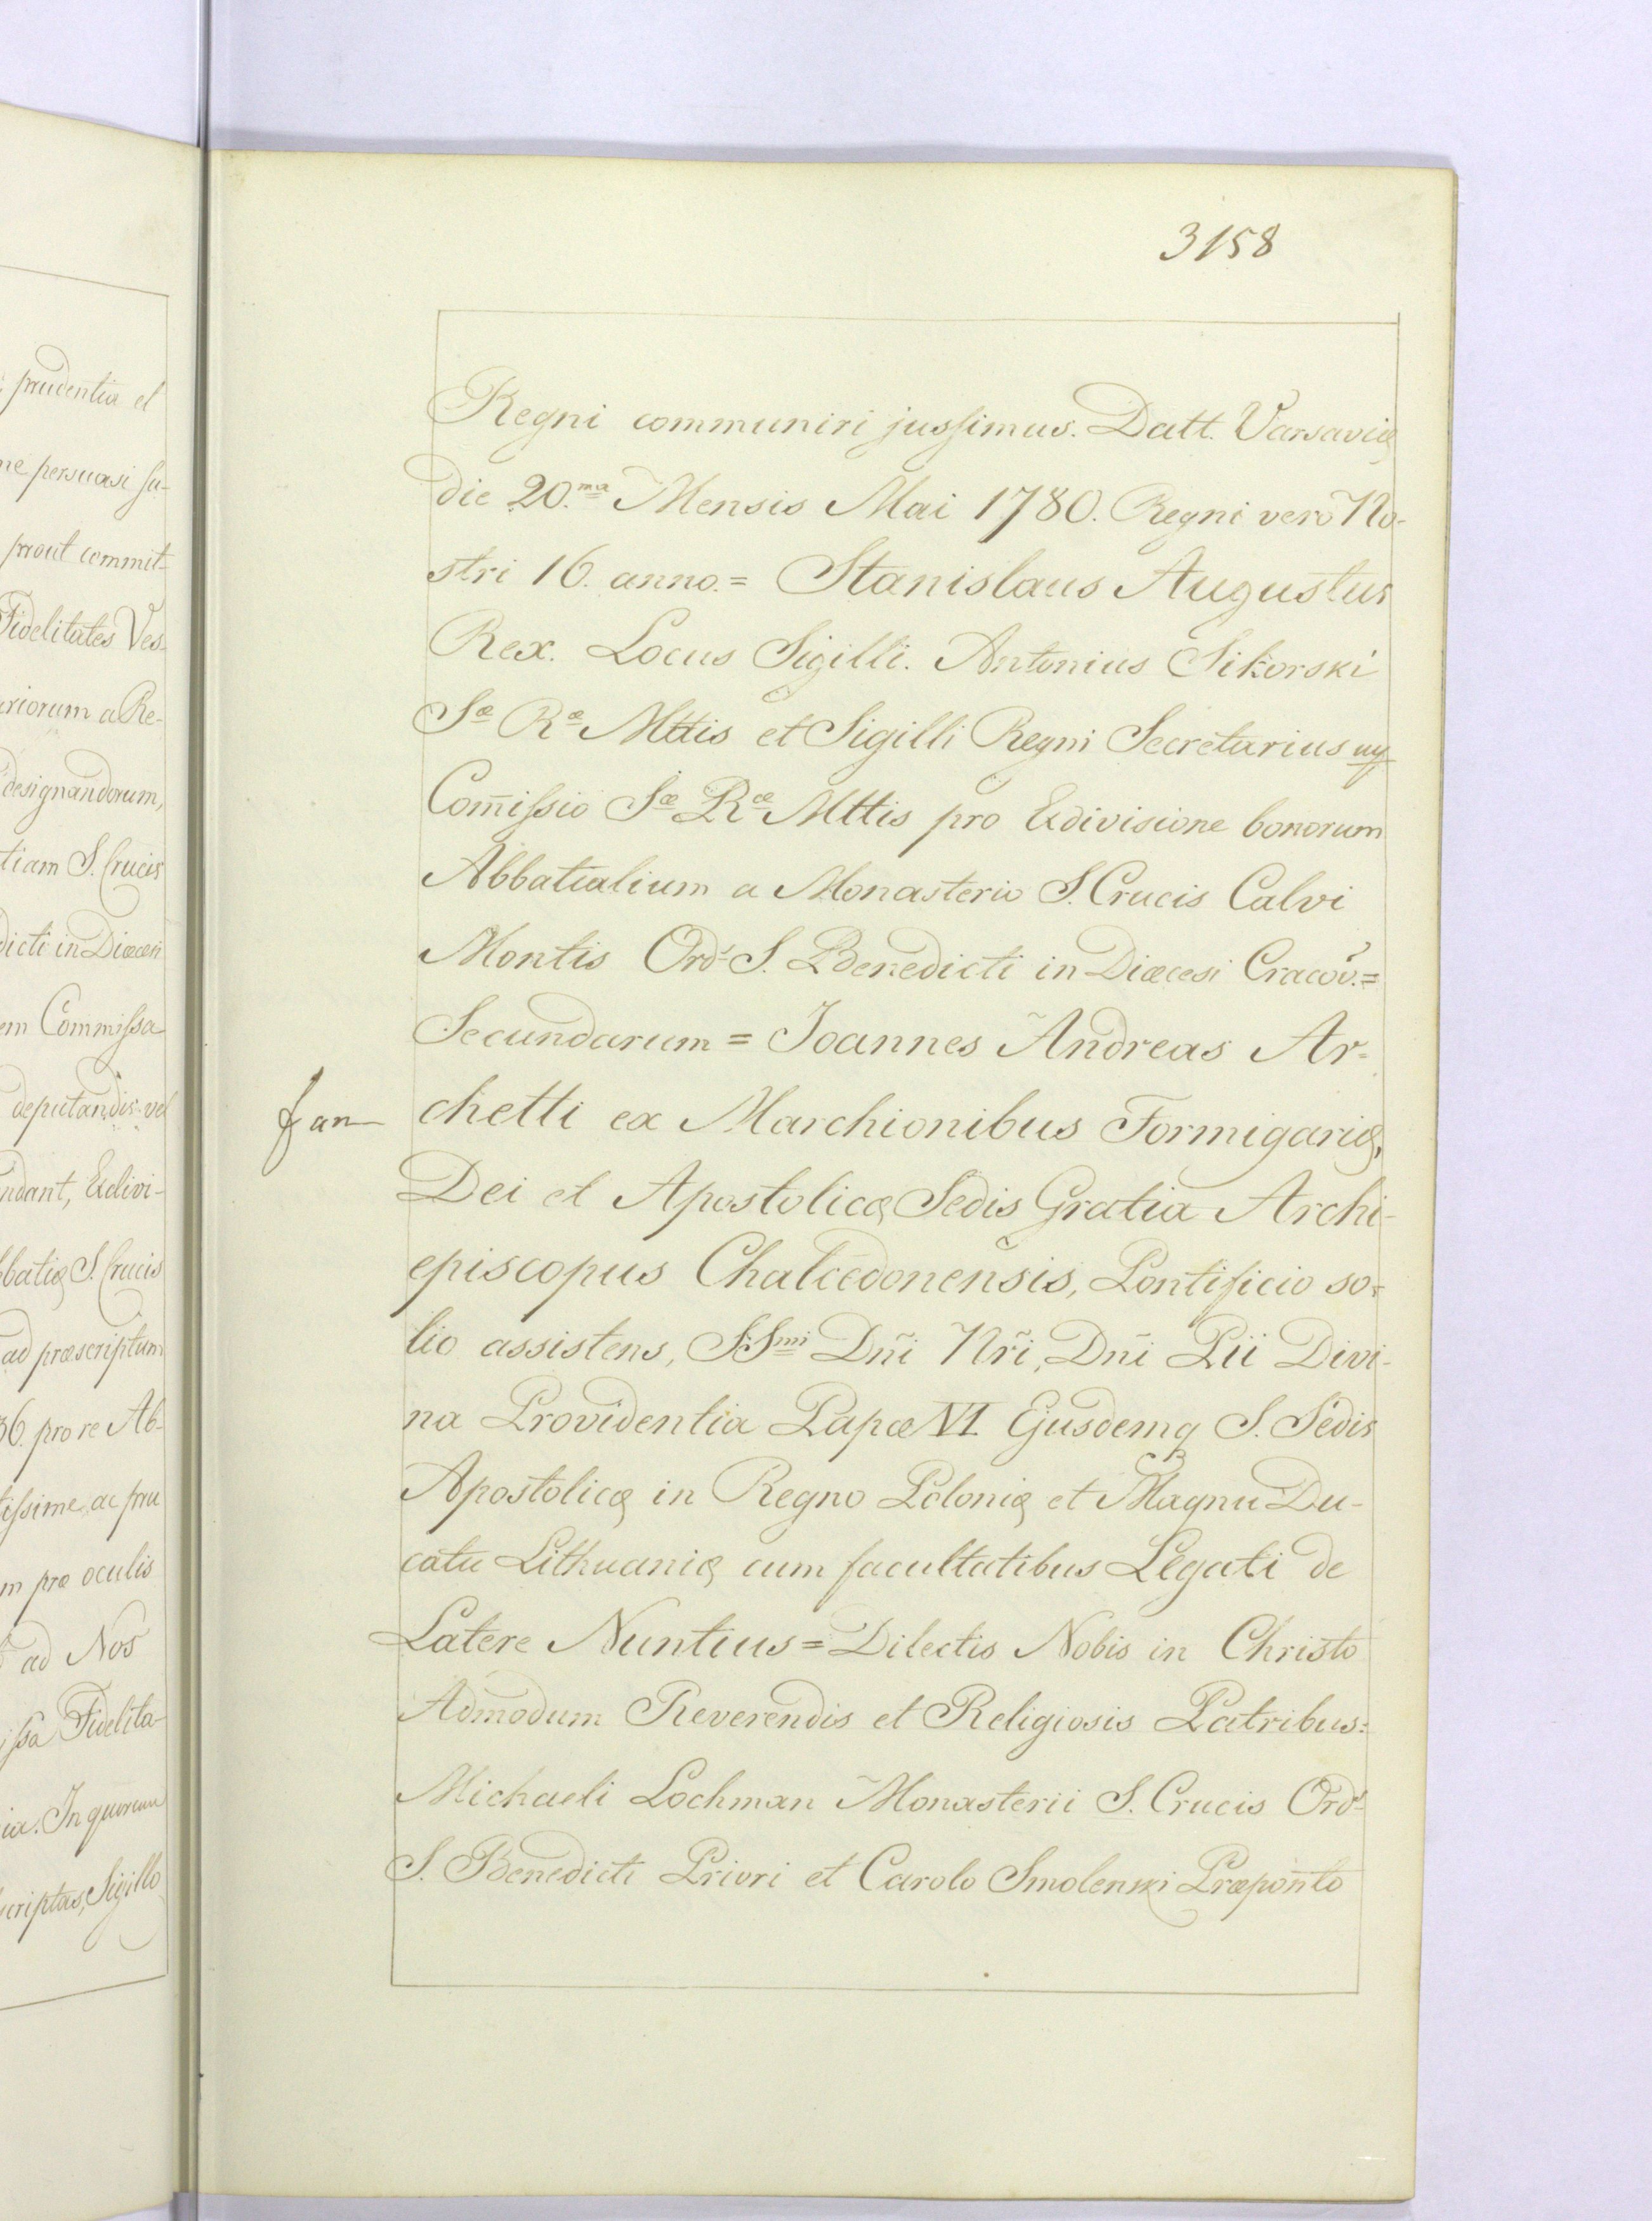 3158
Regni communiri jussimus. Datt. Varsaviæ
die 20.ma Mensis Mai 1780. Regni vero No-
stri 16. anno.= Stanislaus Augustus
Rex. Locus Sigilli. Antonius Sikorski
Sæ Ræ Mttis et Sigilli Regni Secretarius
Com̄issio Sæ Ræ Mttis pro Exdivisione bonorum
Abbatialium a Monasterio S. Crucis Calvi
Montis Ords S. Benedicti in Diœcesi Cracov.=
Secundarum = Joannes Andreas Ar-
chetti ex Marchionibus Formigariæ,
Dei et Apostolicæ Sedis Gratia Archi-
episcopus Chalcedonensis, Pontificio so-
lio assistens, SSmi Dñi Nr̃i, Dñi Pii Divi-
na Providentia Papæ VI Ejusdemq S. Sedis
Apostolicæ in Regno Poloniæ et Magnu Du-
catu Lithuaniæ cum facultatibus Legati de
Latere Nuntius = Dilectis Nobis in Christo
Admodum Reverendis et Religiosis Patribus:
Michaeli Lochman Monasterii S. Crucis Ords
S. Benedicti Priori et Carolo Smolenski Præpoñto
prudentia et
persuasi su-
prout commit-
Fidelitates Ves-
a Re-
designandorum,
tiam S. Crucis
dicti in Diœcesi
em Commissa
deputandis vel
ndant, Exdivi-
bbatiæ S. Crucis
ad præscriptum
36. pro re Ab-
tissime, ac pru
m præ oculis
ad Nos
issa Fidelita-
ia. In quorum
scriptas, Sigillo